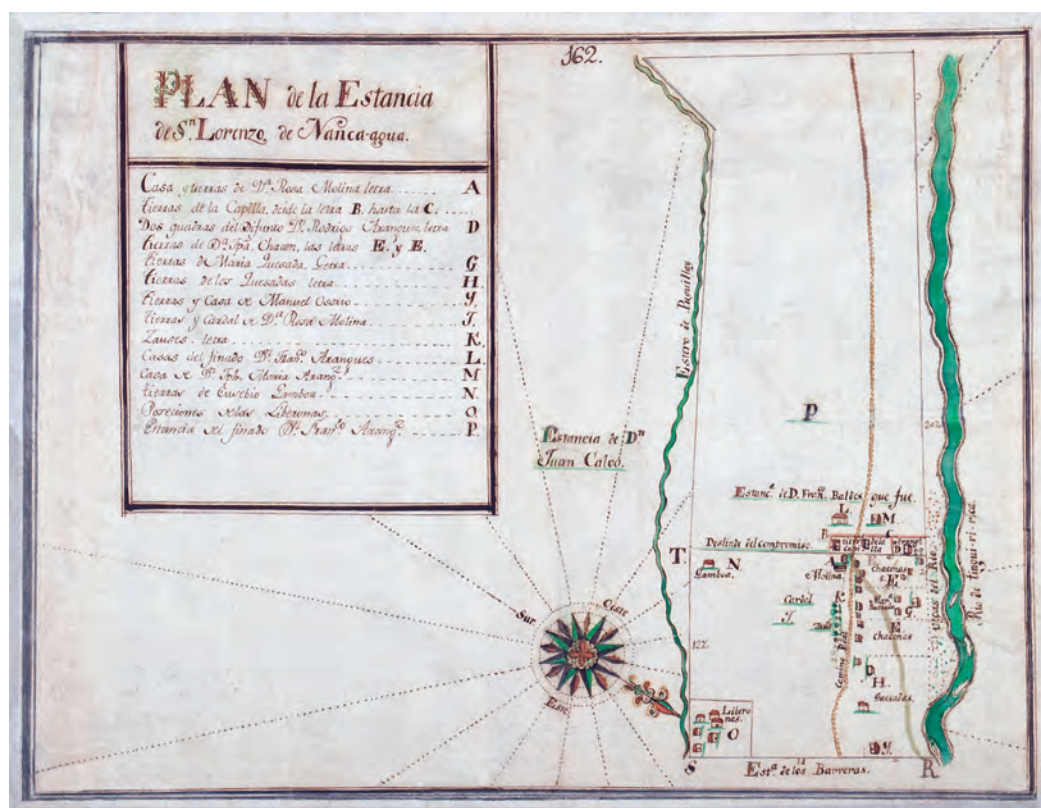 162.
PLAN de la Estancia
de Sn. Lorenzo de Nanca-agua.
Casa, y tierras de Da. Rosa Molina letra A
tierras de la Capilla, desde la letra B. hasta la C.
Dos quadras del Difunto Dn. Rodrigo Aranguiz, letra D
tierras de Da. Jpa. Chacon, las letras E. y E.
tierras de Maria Quesada, Letra G
tierras de los Quesadas letra H
Tierras y Casa de Manuel Osorio Y.
Tierras y Cardal de Da. Rosa Molina J.
Zauses letra K.
Casas del finado Dn. Franco. Arangues L
Casa de Dn. Jph. Maria Arangz. M
tierras de Eusebio Gamboa N.
Poseciones de las Liberonas O.
Estancia del finado Dn. Franco. Arangz. P.
Estero de Puquillay
P
Estancia de Dn
Juan Calvo.
Estanca. de D. Franco. Baldes que fue.
L M.
B C
Deslinde del compromiso.
tierras de la
D
T N
Gamboa.
Molina
Chaconas
E.
Cardal
J.
K
G
E
Chaconas
Camino Real
Vegas del Rio
Rio de tingui-ri-rica.
122
H.
Quesadas.
Sur.
Oeste
Este
Libero-
nas.
O
Y.
S
Esta. de los Barreras.
R